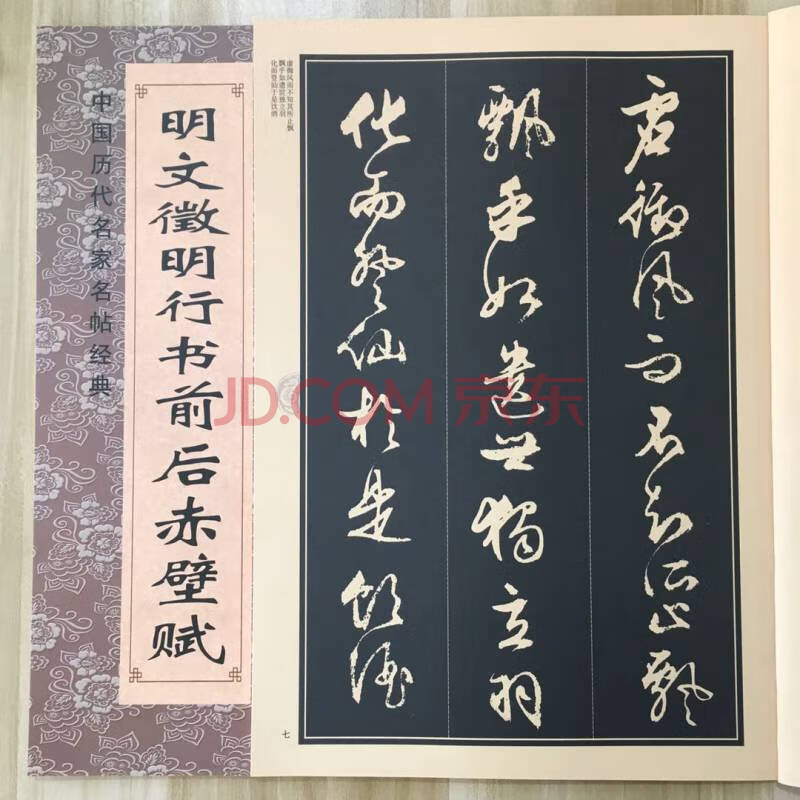 中国历代名家名帖经典
明文徵明行书前后赤壁赋
虚御风而不知其所止飘
飘乎如遗世独立羽
化而登仙于是饮酒
虚御風而不知所止飄
飄乎如遺世獨立羽
化而登仙於是飲酒
七
JD.COM 京东